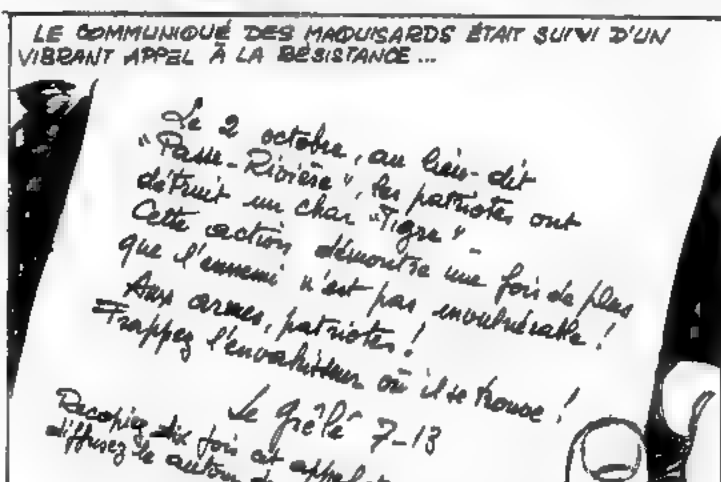 LE COMMUNIQUÉ DES MAQUISARDS ÉTAIT SUIVI D'UN
VIBRANT APPEL À LA RÉSISTANCE...
Le 2 octobre, au lieu-dit
"Passe-Rivière", les patriotes ont
détruit un char "Tigre" -
Cette action démontre une fois de plus
que l'ennemi n'est pas invulnérable !
Aux armes, patriotes !
Frappez l'envahisseur où il se trouve !
Le Grêlé 7-13
Recopiez dix fois cet appel et
diffusez le autour